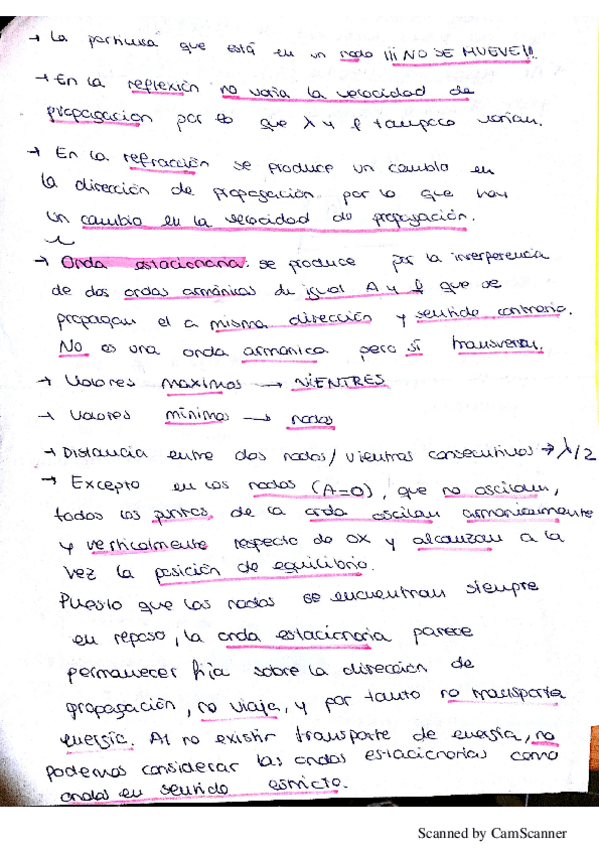 → La partícula que está en un nodo ¡¡¡NO SE MUEVE!!!
→ En la reflexión no varia la velocidad de
propagacion por eso que λ y f tampoco varian.
→ En la refracción se produce un cambio en
la dirección de propagación por lo que hay
un cambio en la velocidad de propagación.
→ Onda estacionaria: se produce por la interferencia
de dos ondas armónicas de igual A y f que se
propagan el a misma dirección y sentido contrario.
No es una onda armónica pero sí transversal.
→ Valores maximos → VIENTRES
→ Valores mínimos → nodos
→ Distancia entre dos nodos/vientres consecutivos → λ/2
→ Excepto en los nodos (A=0), que no oscilan,
todos los puntos de la onda oscilan armonicamente
y verticalmente respecto de OX y alcanzan a la
vez la posición de equilibrio.
Puesto que los nodos se encuentran siempre
en reposo, la onda estacionaria parece
permanecer fija sobre la dirección de
propagación, no viaja, y por tanto no transporta
energía. Al no existir transporte de energía, no
podemos considerar las ondas estacionarias como
ondas en sentido estricto.
Scanned by CamScanner